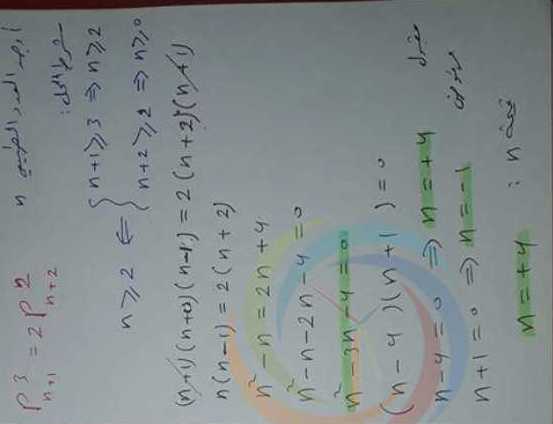 أوجد العدد الطبيعي n
P³ₙ₊₁ = 2P²ₙ₊₂
شرط الحل:
n ≥ 2 ⇐ { n+1 ≥ 3 ⇒ n ≥ 2
n+2 ≥ 2 ⇒ n ≥ 0
(n+1)(n+0)(n-1) = 2(n+2)(n+1)
n(n-1) = 2(n+2)
n² - n = 2n + 4
n² - n - 2n - 4 = 0
n² - 3n - 4 = 0
(n - 4)(n + 1) = 0
n - 4 = 0 ⇒ n = +4 مقبول
n + 1 = 0 ⇒ n = -1 مرفوض
قيمة n :
n = +4